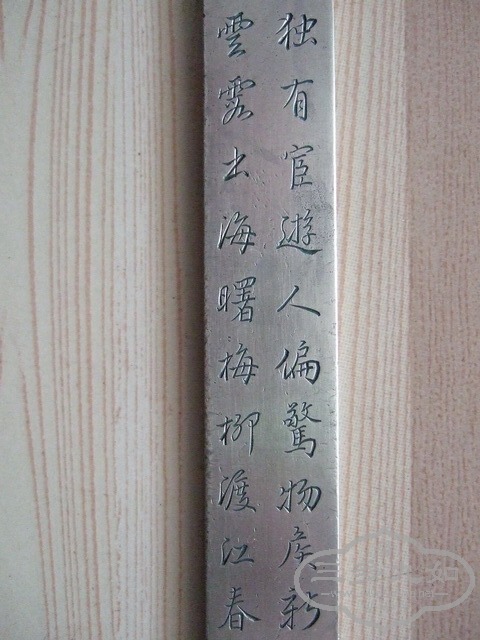 独有宦遊人偏驚物候新
雲霞出海曙梅柳渡江春